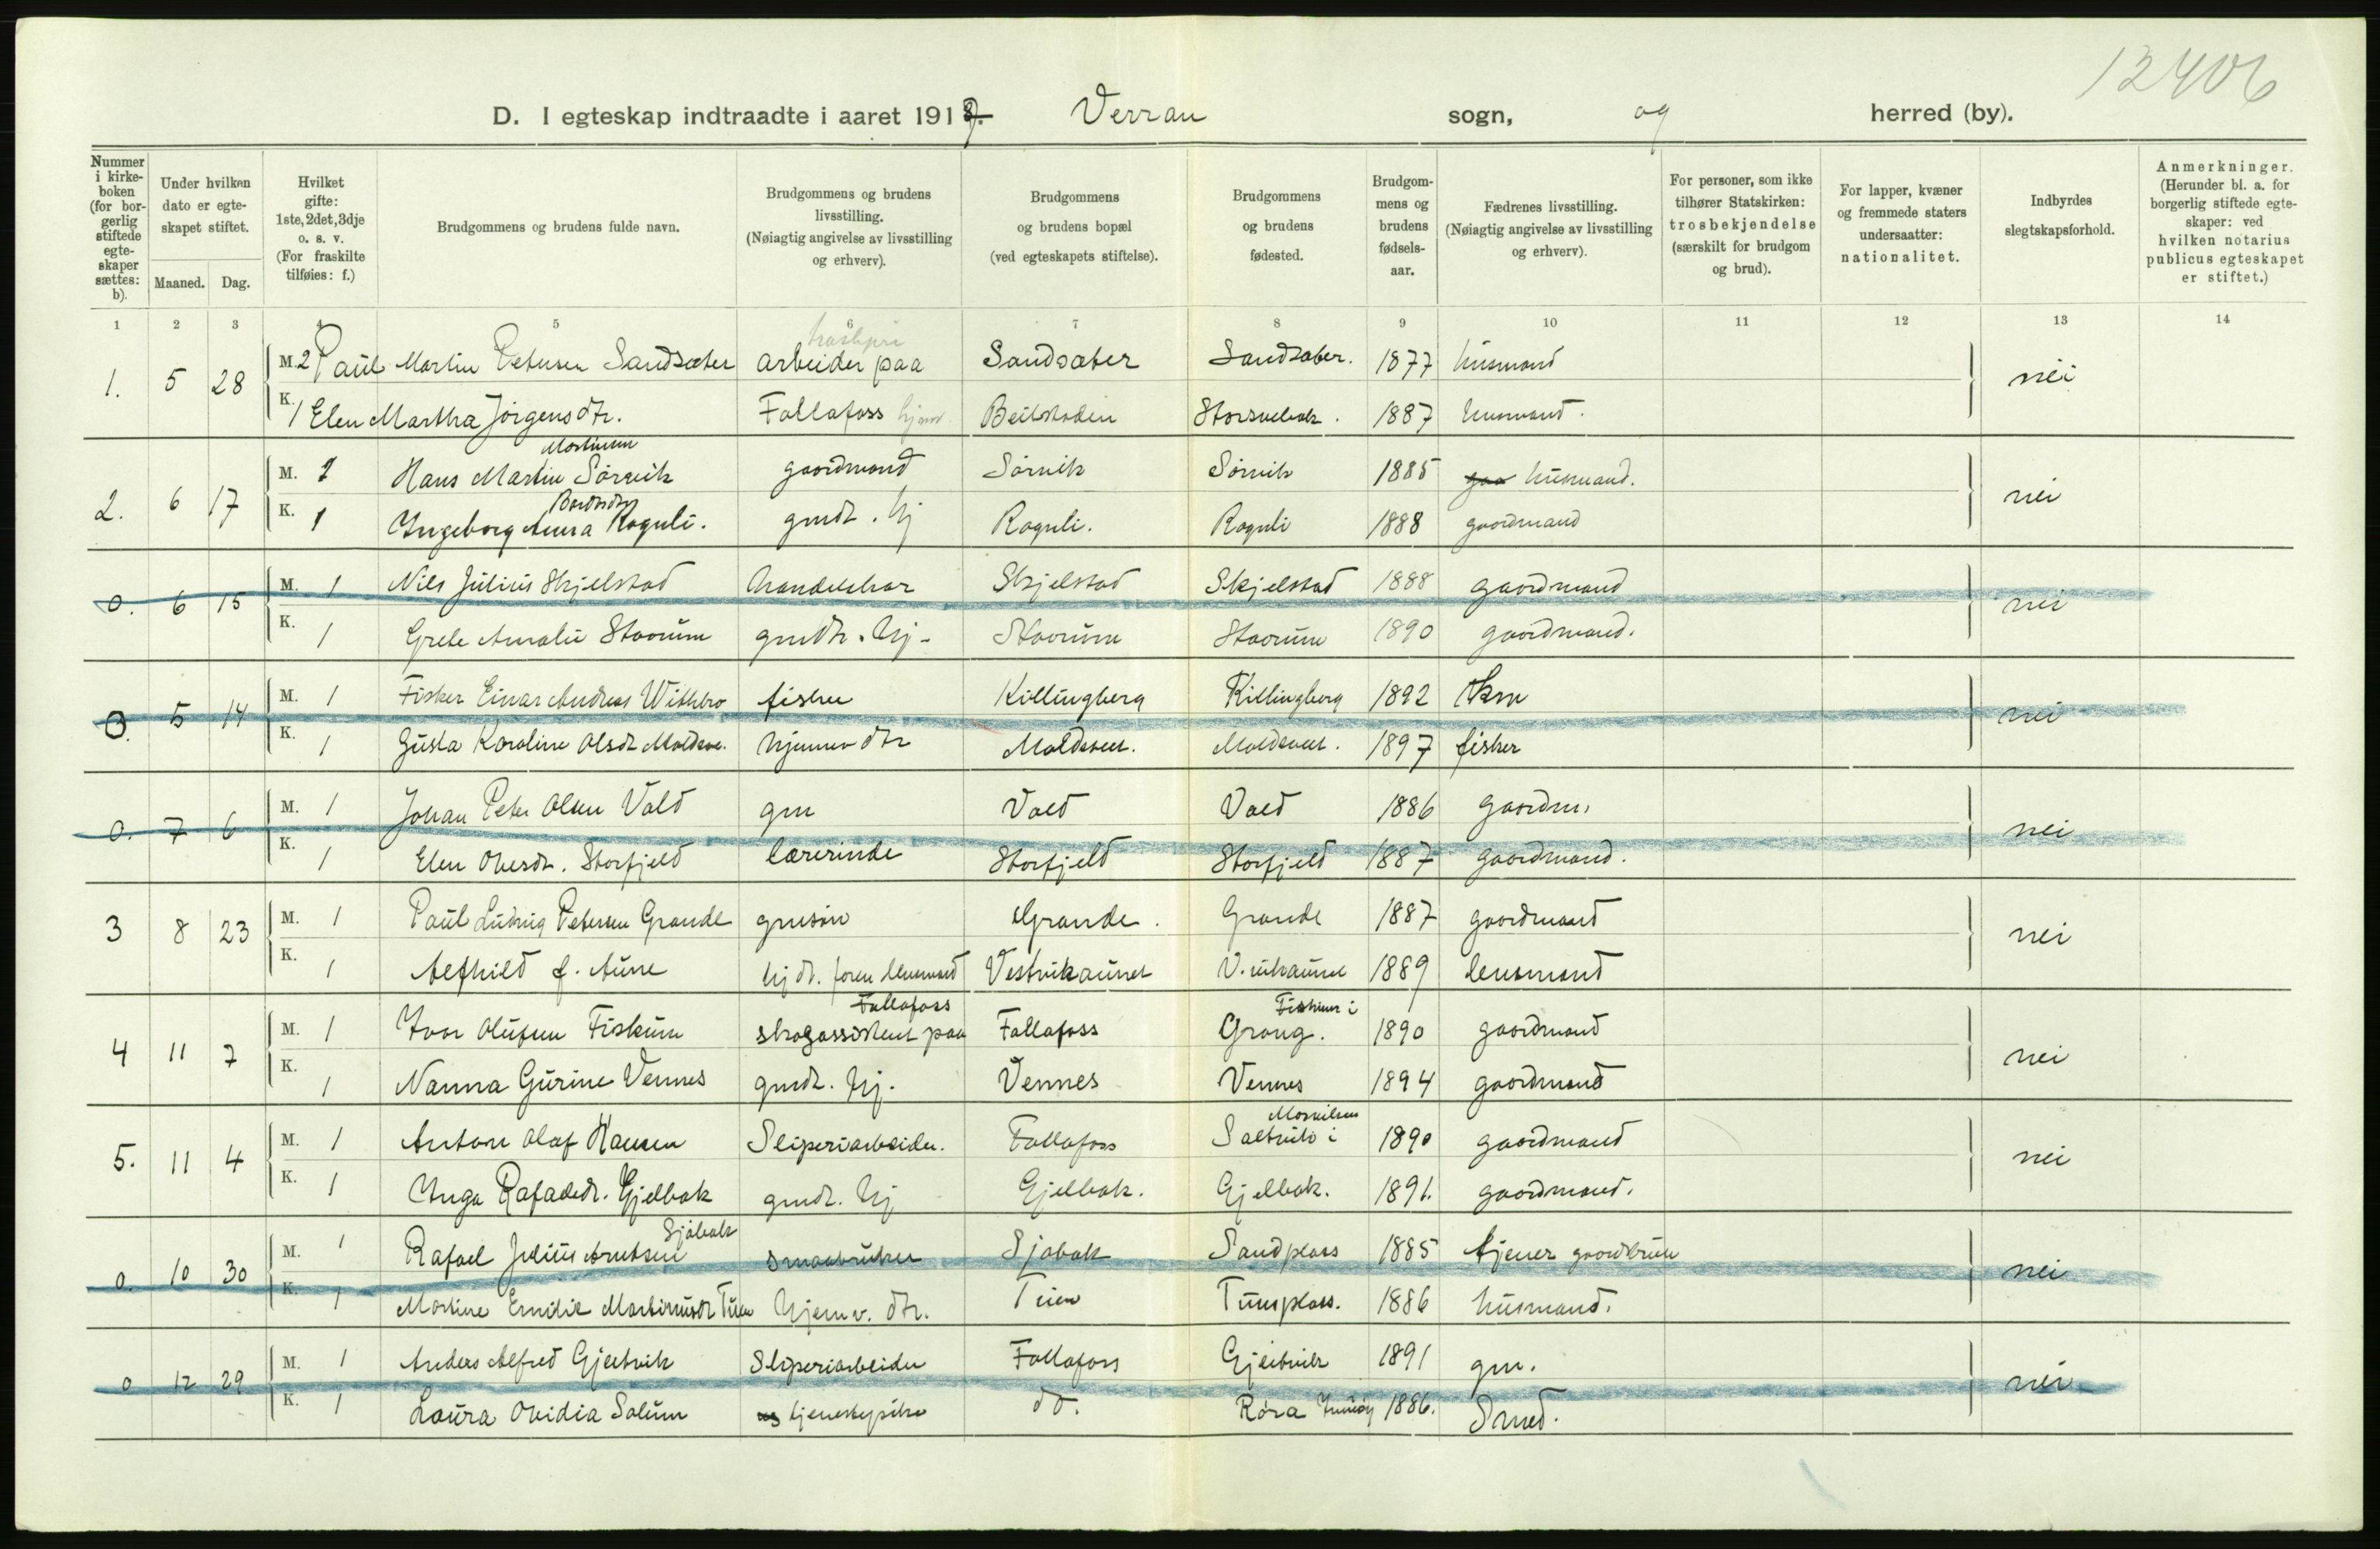 12406
D. I egteskap indtraadte i aaret 191 Verran sogn, og herred (by).
Nummer i kirkeboken (for borgerlig stiftede egteskaper sættes: b).
Under hvilken dato er egteskapet stiftet.
Maaned. Dag.
Hvilket gifte: 1ste, 2det, 3dje o. s. v. (For fraskilte tilføies: f.)
Brudgommens og brudens fulde navn.
Brudgommens og brudens livsstilling. (Nøiagtig angivelse av livsstilling og erhverv).
Brudgommens og brudens bopæl (ved egteskapets stiftelse).
Brudgommens og brudens fødested.
Brudgommens og brudens fødselsaar.
Fædrenes livsstilling. (Nøiagtig angivelse av livsstilling og erhverv).
For personer, som ikke tilhører Statskirken: trosbekjendelse (særskilt for brudgom og brud).
For lapper, kvæner og fremmede staters undersaatter: nationalitet.
Indbyrdes slegtskapsforhold.
Anmerkninger. (Herunder bl. a. for borgerlig stiftede egteskaper: ved hvilken notarius publicus egteskapet er stiftet.)
1 2 3 4 5 6 7 8 9 10 11 12 13 14
1. 5 28 M. 2 Paul Martin Petersen Sandsæter arbeider paa Sandsæter Sandsæter. 1877 husmand nei
K. 1 Elen Martha Jörgensdtr. Follafoss Beitstaden 1887 husmand.
2. 6 17 M. 1 Hans Martin Martinsen Sörvik gaardmand Sörvik Sörvik 1885 husmand. nei
K. 1 Ingeborg Anna Roguli. gmdt. hj Roguli. Roguli 1888 gaardmand
0. 6 15 M. 1 Nils Julius Skjelstad handelskar Skjelstad Skjelstad 1888 gaardmand nei
K. 1 Grete Amalie Staorum gmdtr. hj. Staorum Staorum 1890 gaardmand.
0. 5 14 M. 1 Fisker Einar Andreas fisker Killingberg Killingberg 1892 nei
K. 1 Gusta Karoline Olsdt hjemmev dtr 1897 fisker
0. 7 6 M. 1 Johan Peter Olsen Vald gm Vald Vald 1886 gaardm. nei
K. 1 Elen Olesdt. Storfjeld lærerinde Storfjeld Storfjeld 1887 gaardmand.
3 8 23 M. 1 Paul Ludvig Petersen Grande gmsön Grande. Grande 1887 gaardmand nei
K. 1 Alfhild f. Aune hj dt. Vestvikaunet V.vikaunet 1889 lensmand
4 11 7 M. 1 Ivar Olufsen Fiskum skogassistent paa Follafoss Follafoss Fiskum i Grong. 1890 gaardmand nei
K. 1 Nanna Gurine Vennes gmdt. hj. Vennes Vennes 1894 gaardmand
5. 11 4 M. 1 Anton Olaf Hansen Sliperiarbeider. Follafoss Saltvik i Mosvik 1890 gaardmand nei
K. 1 Inga Rafaelsdt. Gjelbak gmdt. hj Gjelbak. Gjelbak. 1891. gaardmand.
0. 10 30 M. 1 Rafael Julius Arntsen Sjöbak smaabruker Sjöbak Sandplass 1885 tjener nei
K. 1 Martine Emilie Martinusdt Tuen hjemv. dtr. Tuen Tuenplass. 1886 husmand.
0 12 29 M. 1 Anders Alfred Gjeitvik Sliperiarbeider Follafoss Gjeitvik 1891 gm. nei
K. 1 Laura Ovidia Solum tjenestepike do. Röra 1886. Smed.